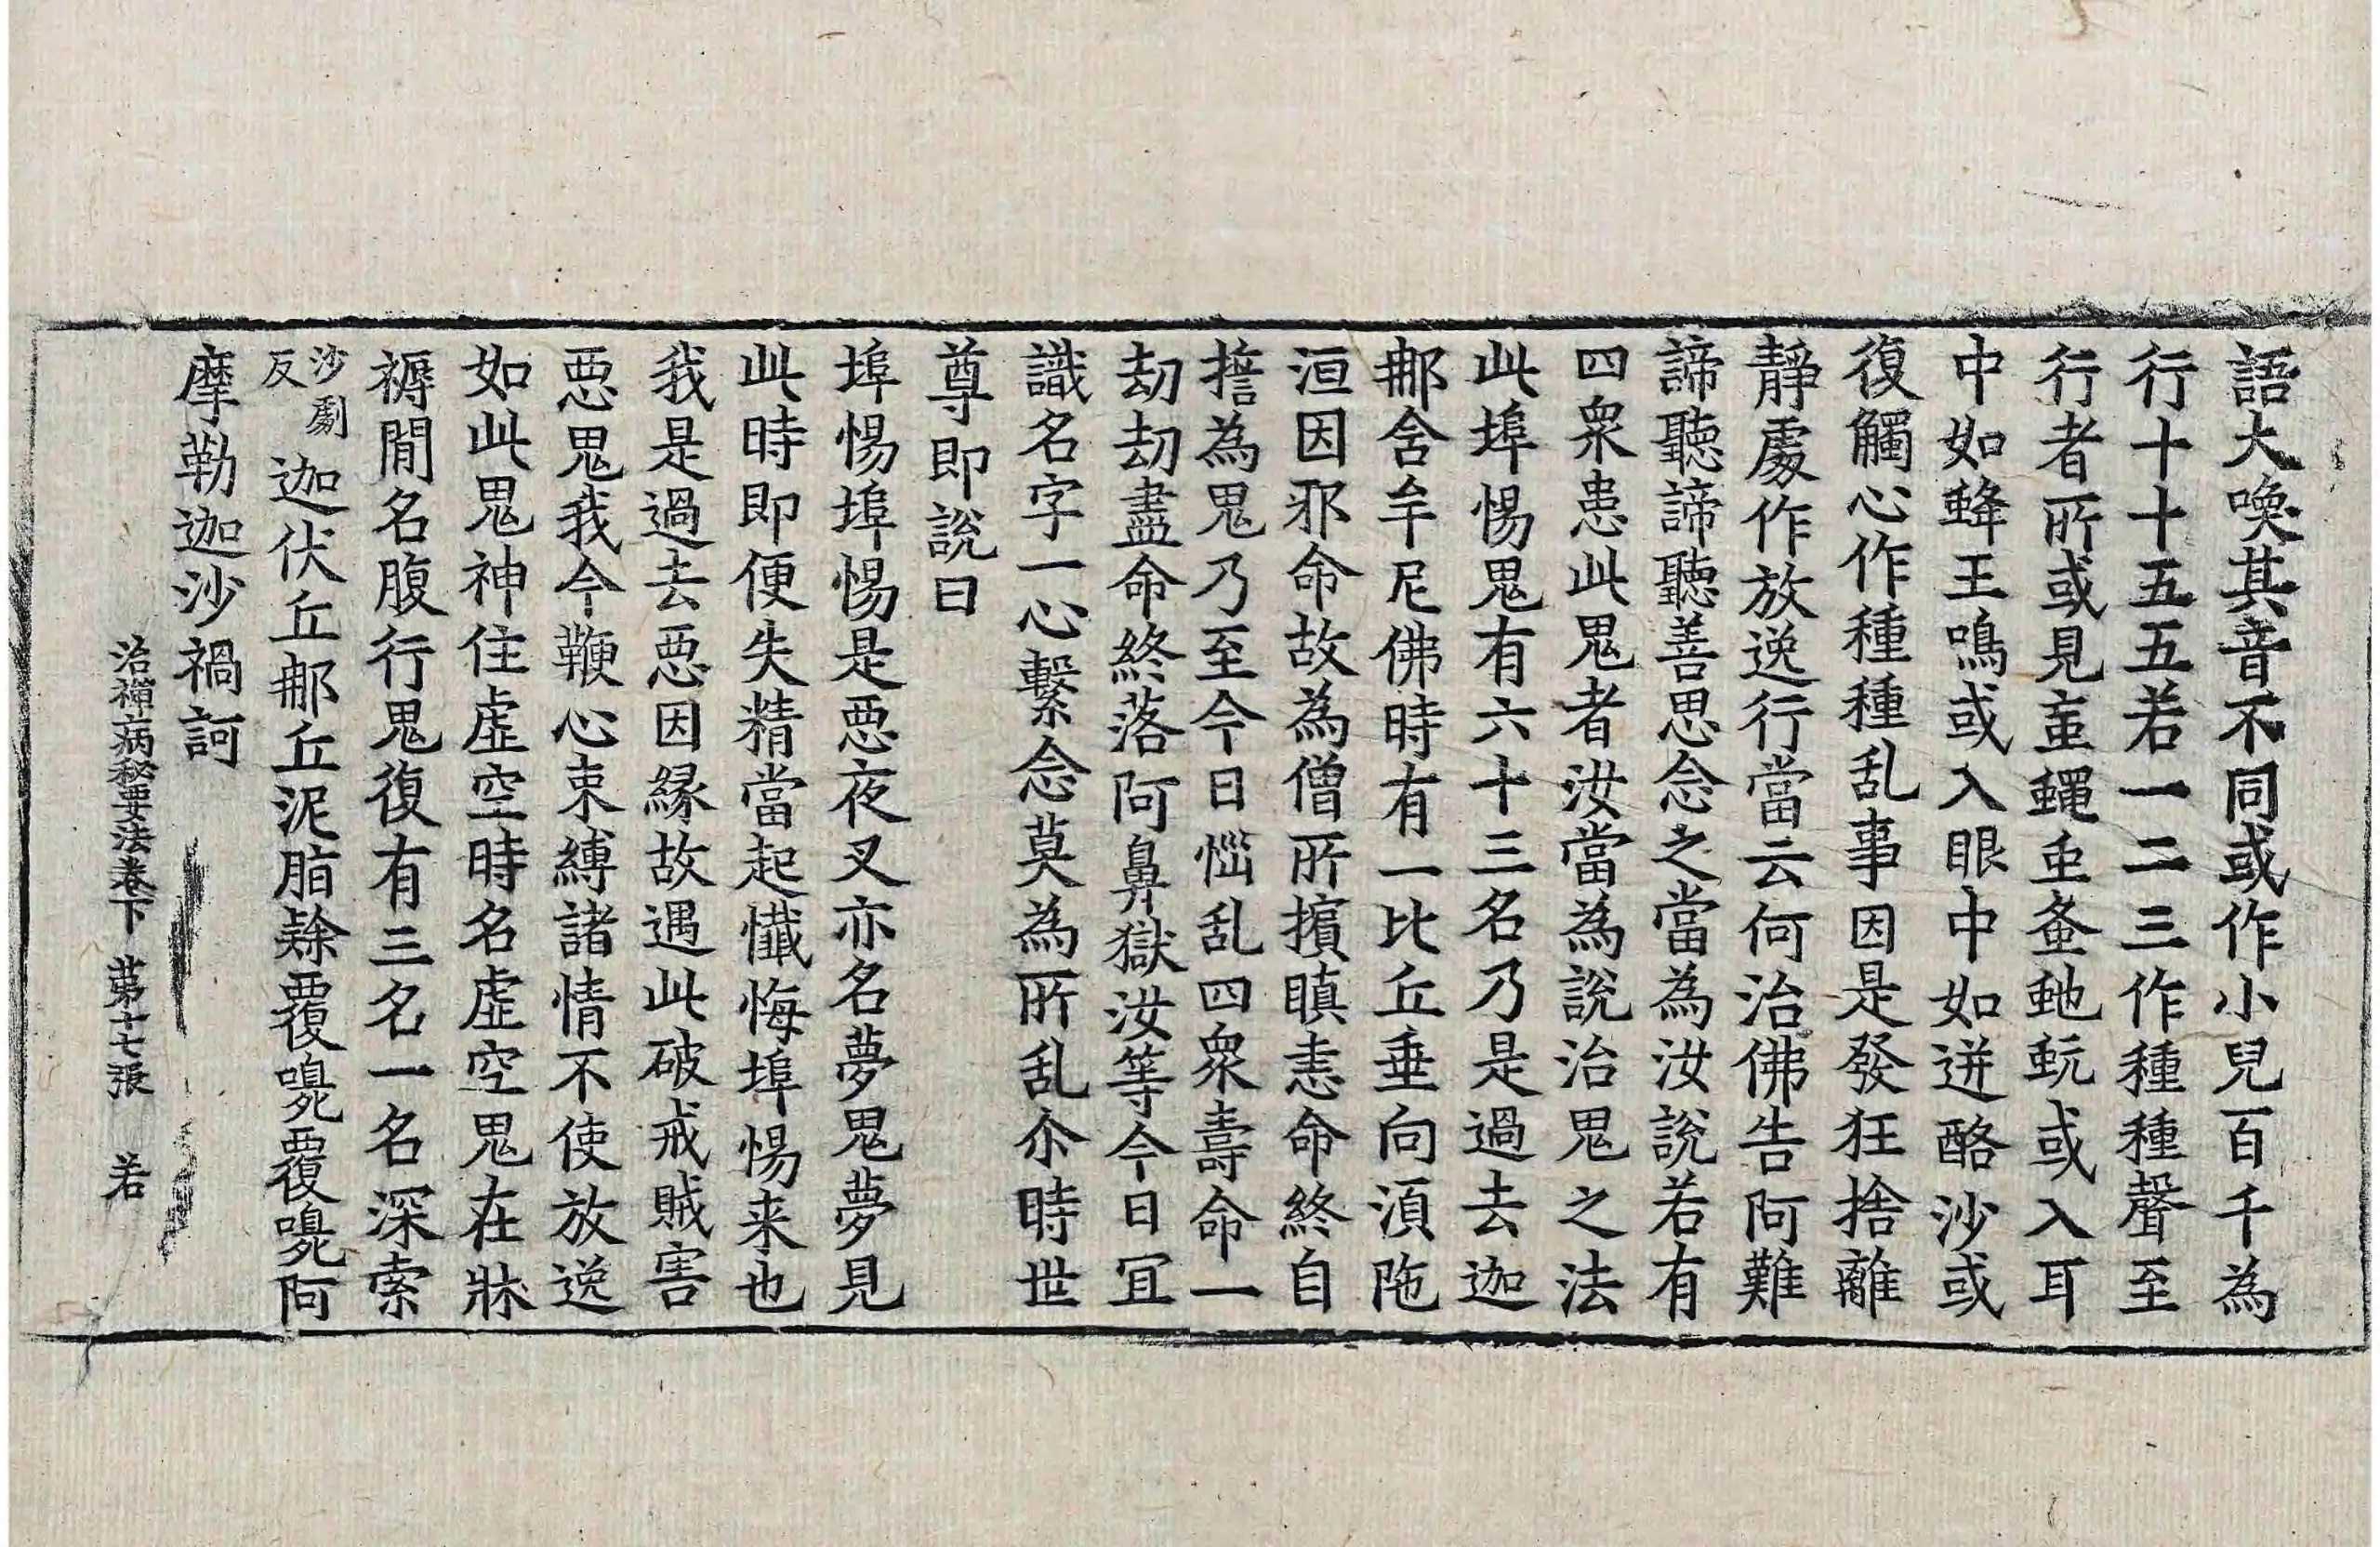 語大喚其音不同或作小兒百千為
行十十五五若一二三作種種聲至
行者所或見䖝蠅䖝蚤虵蚖或入耳
中如蜂王鳴或入眼中如迸酪沙或
復觸心作種種乱事因是發狂捨離
靜處作放逸行當云何治佛告阿難
諦聽諦聽善思念之當為汝說若有
四衆患此鬼者汝當為說治鬼之法
此埠惕鬼有六十三名乃是過去迦
那舍牟尼佛時有一比丘垂向湏陁
洹因邪命故為僧所擯瞋恚命終自
誓為鬼乃至今日惱乱四衆壽命一
劫劫盡命終落阿鼻獄汝等今日冝
識名字一心繫念莫為所乱尒時世
尊即說曰
埠惕埠惕是惡夜叉亦名夢鬼夢見
此時即便失精當起懺悔埠惕来也
我是過去惡因緣故遇此破戒賊害
惡鬼我今鞭心束縛諸情不使放逸
如此鬼神住虛空時名虛空鬼在牀
褥閒名腹行鬼復有三名一名深索
沙劇反迦伏丘那丘泥脂䐾覆嚊覆嚊阿
摩勒迦沙禍訶
治禪病秘要法卷下 第十七張 若